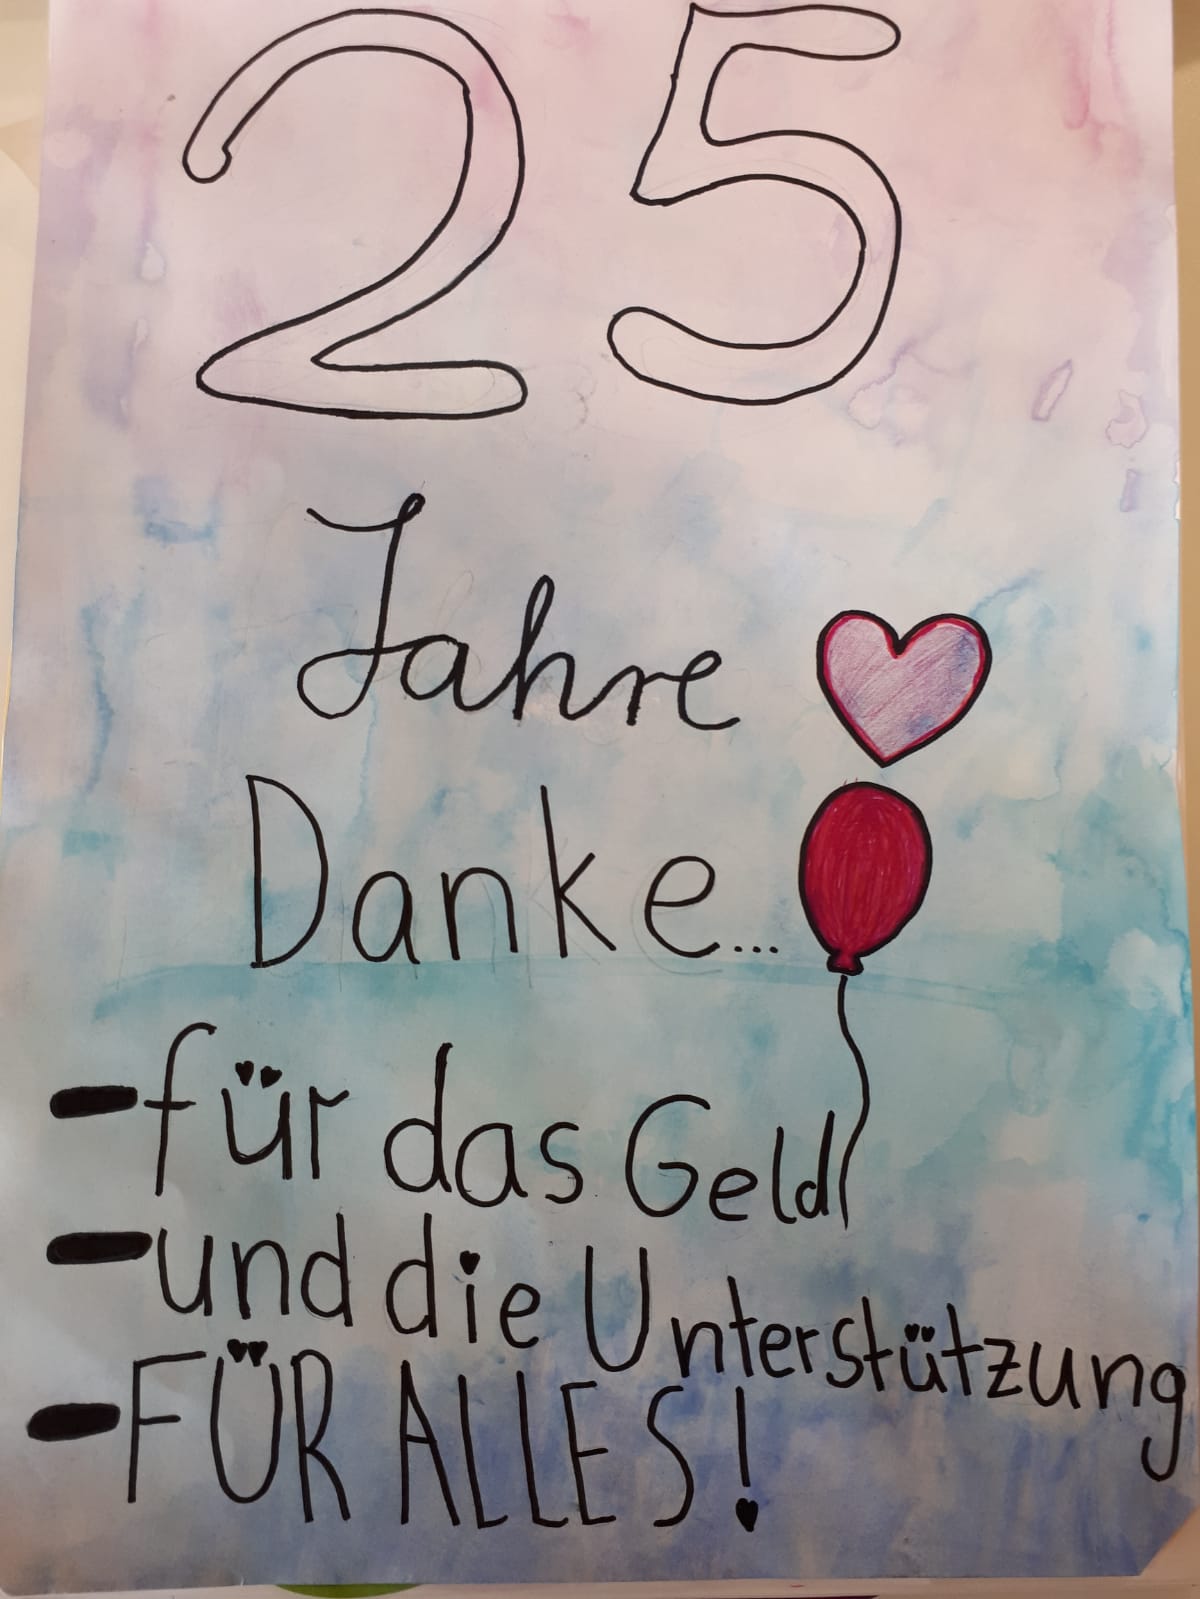 25
Jahre
Danke...
-für das Geld
-und die Unterstützung
-FÜR ALLES!